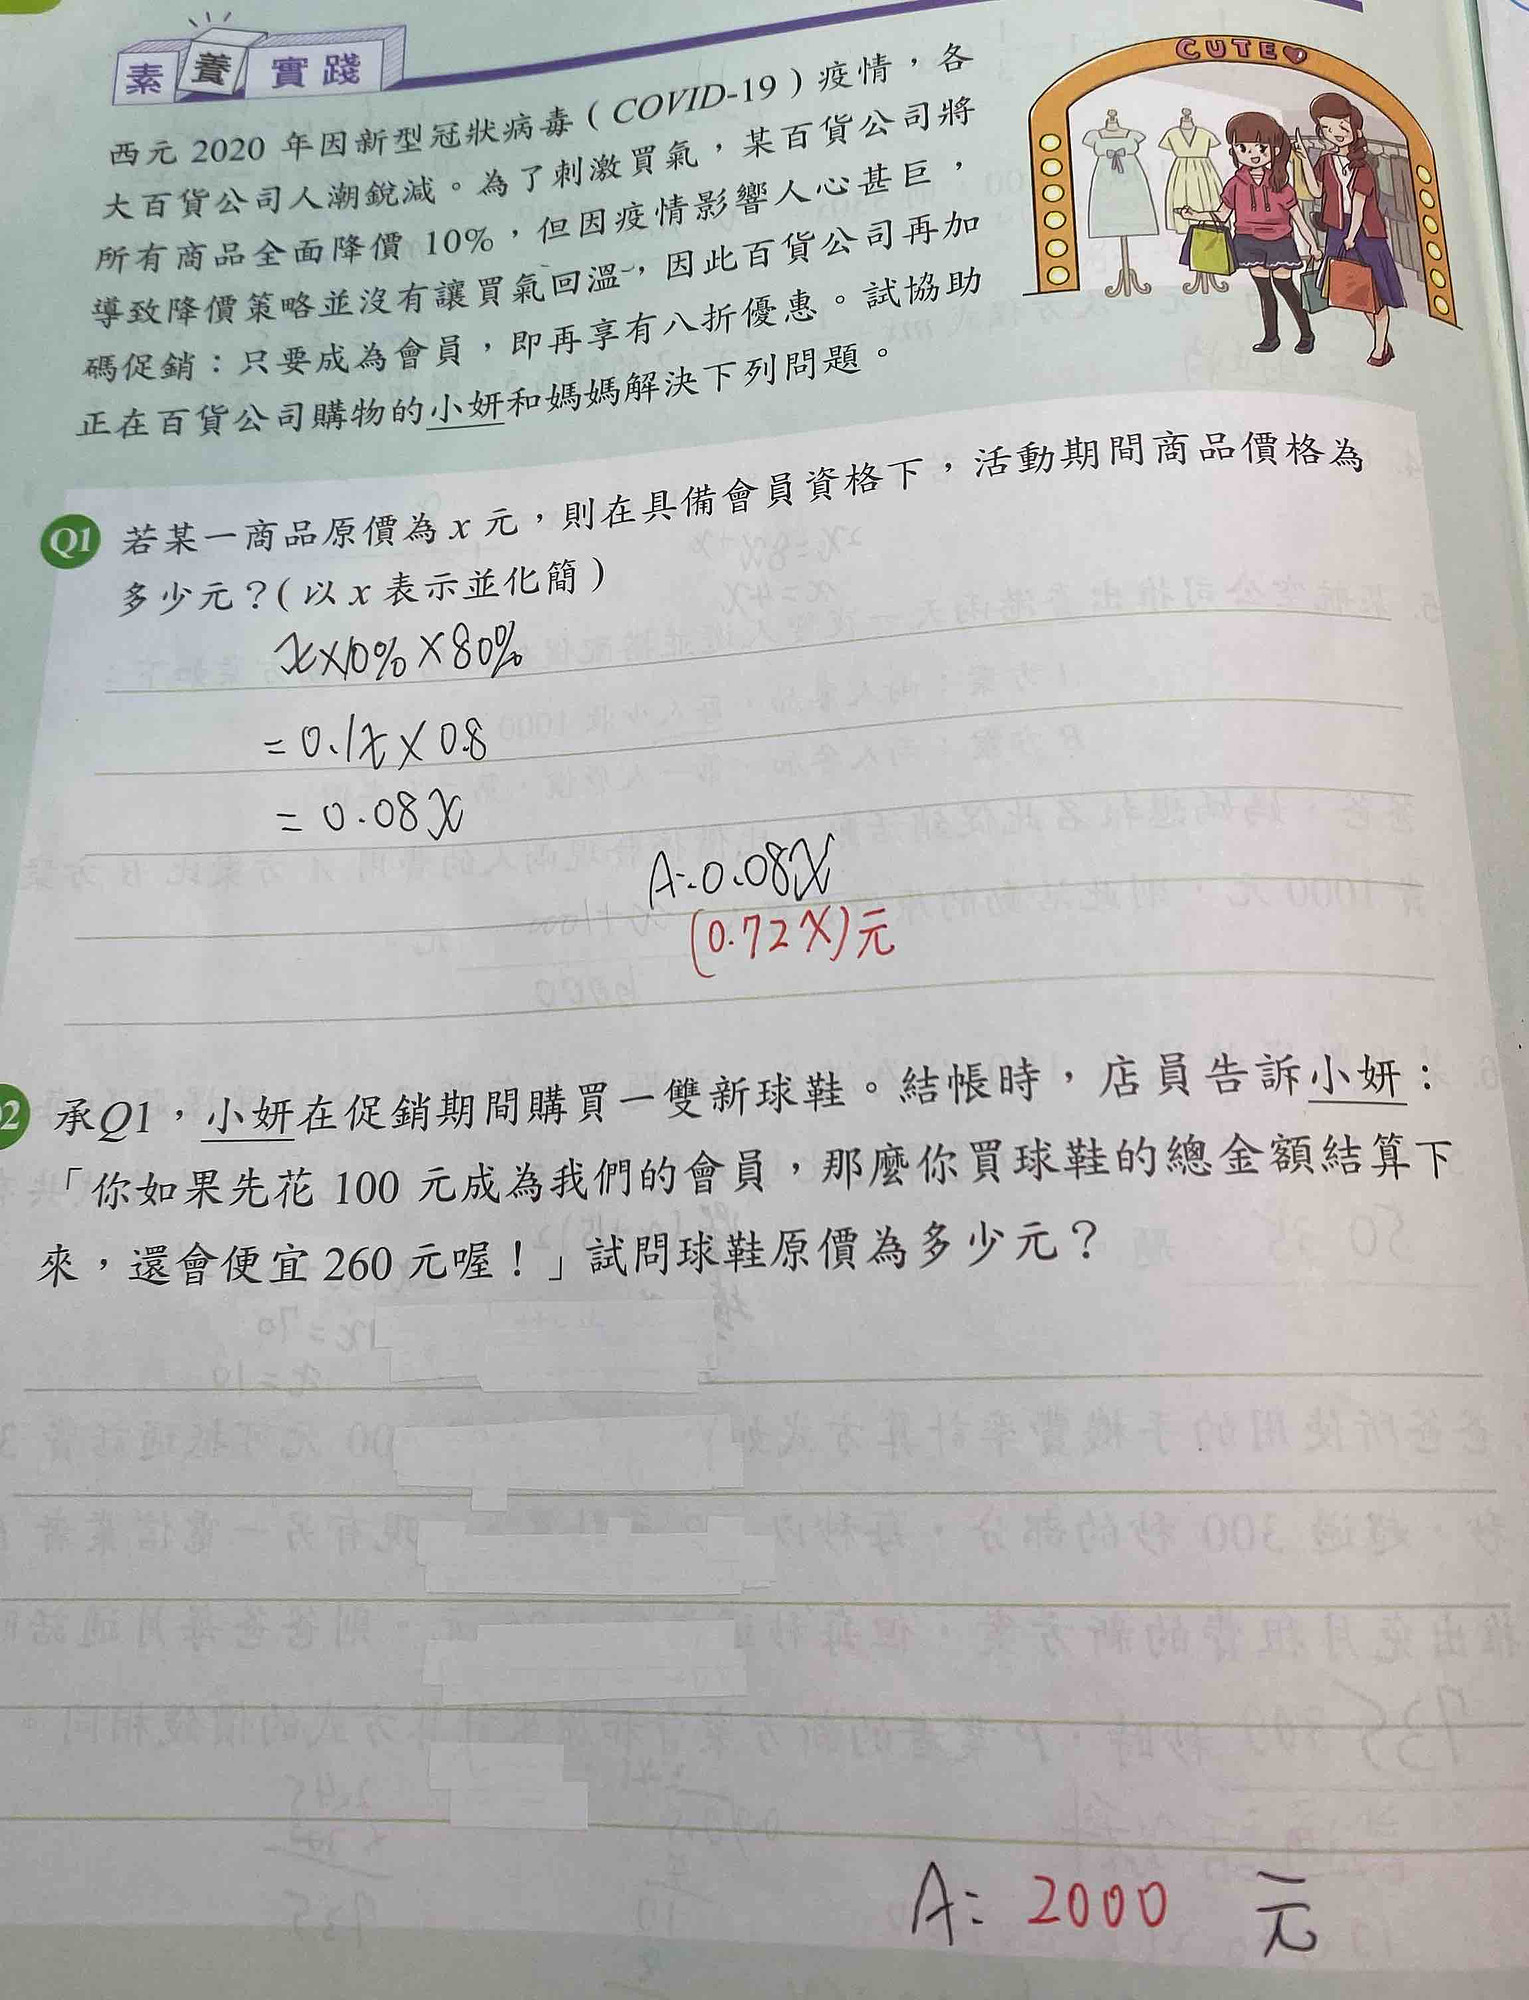 素養實踐
CUTE
西元 2020 年因新型冠狀病毒(COVID-19)疫情,各
大百貨公司人潮銳減。為了刺激買氣,某百貨公司將
所有商品全面降價 10%,但因疫情影響人心甚巨,
導致降價策略並沒有讓買氣回溫,因此百貨公司再加
碼促銷:只要成為會員,即再享有八折優惠。試協助
正在百貨公司購物的小妍和媽媽解決下列問題。
Q1 若某一商品原價為 x 元,則在具備會員資格下,活動期間商品價格為
多少元?(以 x 表示並化簡)
x×10%×80%
=0.1x×0.8
=0.08x
A:0.08x
(0.72x)元
2 承Q1,小妍在促銷期間購買一雙新球鞋。結帳時,店員告訴小妍:
「你如果先花 100 元成為我們的會員,那麼你買球鞋的總金額結算下
來,還會便宜 260 元喔!」試問球鞋原價為多少元?
A: 2000 元